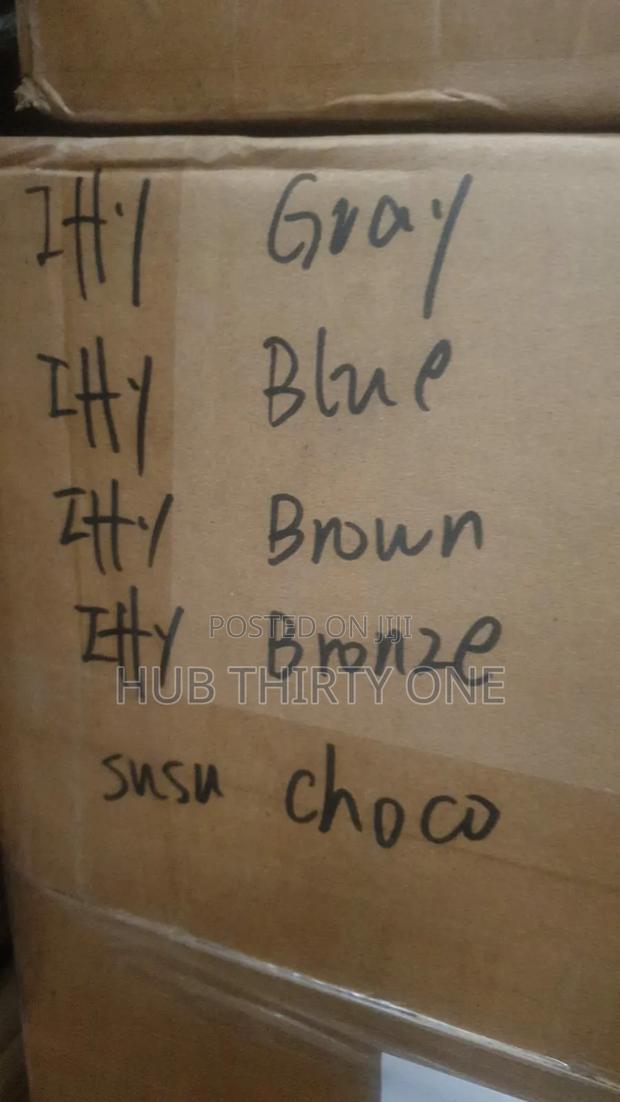 IHY Gray
IHY Blue
IHY Brown
IHY Bronze
POSTED ON JIJI
HUB THIRTY ONE
susu choco